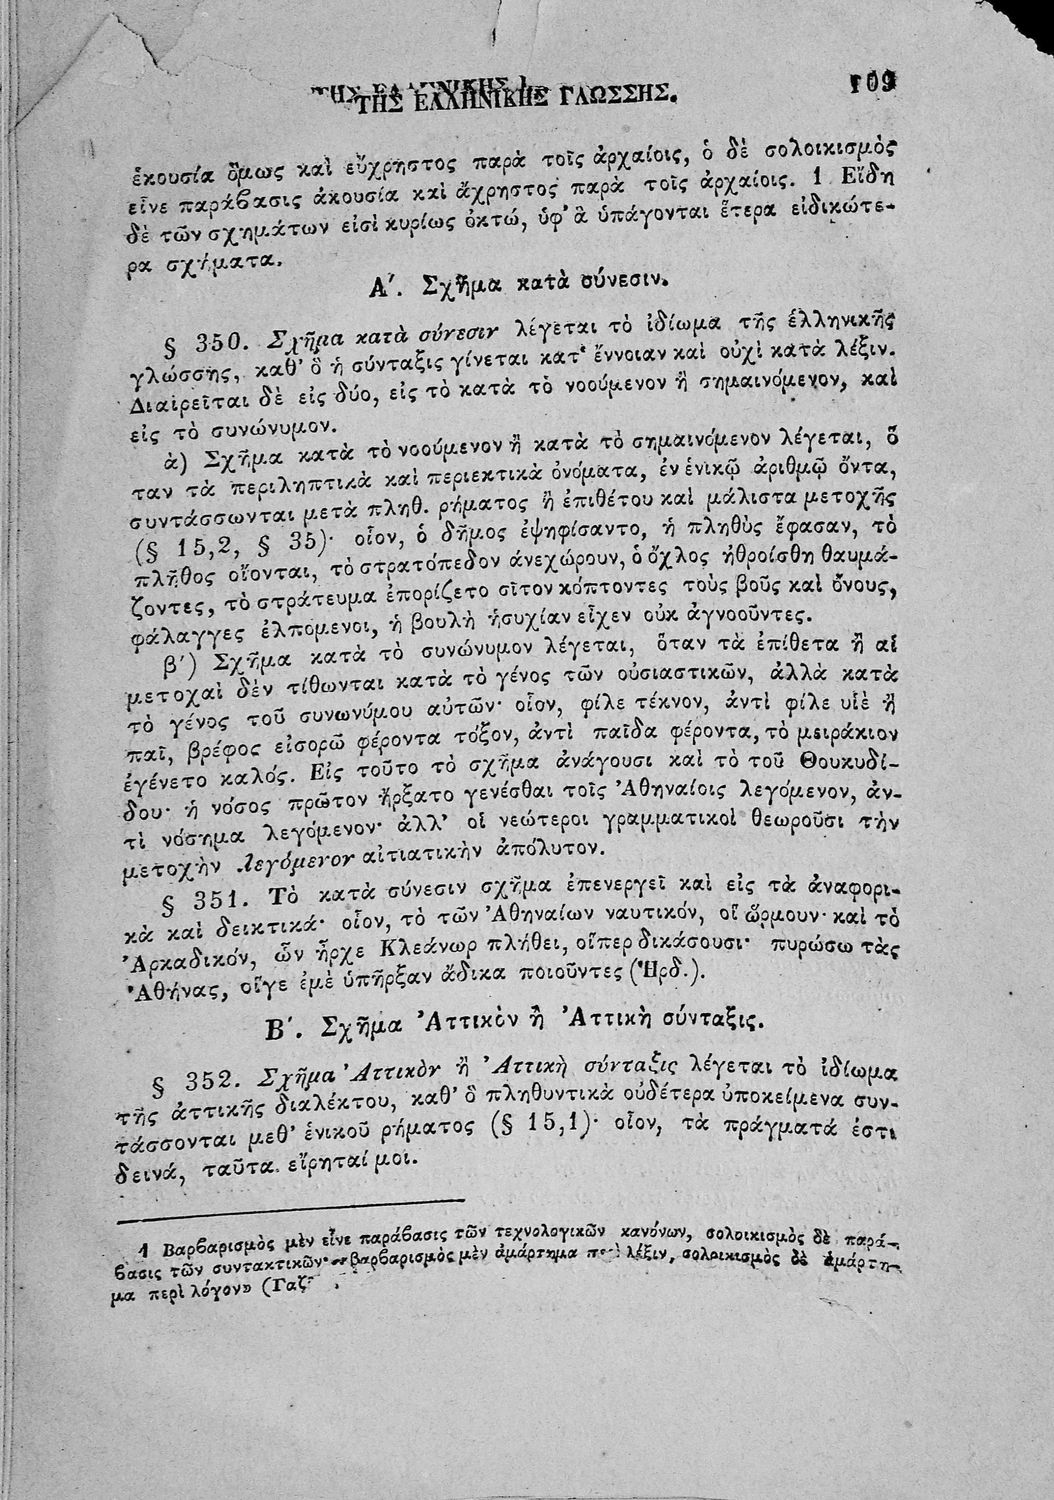 ΤΗΣ ΕΛΛΗΝΙΚΗΣ ΓΛΩΣΣΗΣ. 109
ἑκουσία ὅμως καὶ εὔχρηστος παρὰ τοῖς ἀρχαίοις, ὁ δὲ σολοικισμὸς
εἶνε παράβασις ἀκουσία καὶ ἄχρηστος παρὰ τοῖς ἀρχαίοις. 1 Εἴδη
δὲ τῶν σχημάτων εἰσὶ κυρίως ὀκτώ, ὑφ' ἃ ὑπάγονται ἕτερα εἰδικώτε-
ρα σχήματα.
Α´. Σχῆμα κατὰ σύνεσιν.
§ 350. Σχῆμα κατὰ σύνεσιν λέγεται τὸ ἰδίωμα τῆς ἑλληνικῆς
γλώσσης, καθ' ὃ ἡ σύνταξις γίνεται κατ' ἔννοιαν καὶ οὐχὶ κατὰ λέξιν.
Διαιρεῖται δὲ εἰς δύο, εἰς τὸ κατὰ τὸ νοούμενον ἢ σημαινόμενον, καὶ
εἰς τὸ συνώνυμον.
ὰ) Σχῆμα κατὰ τὸ νοούμενον ἢ κατὰ τὸ σημαινόμενον λέγεται, ὅ
ταν τὰ περιληπτικὰ καὶ περιεκτικὰ ὀνόματα, ἐν ἑνικῷ ἀριθμῷ ὄντα,
συντάσσωνται μετὰ πληθ. ρήματος ἢ ἐπιθέτου καὶ μάλιστα μετοχῆς
(§ 15,2, § 35)· οἷον, ὁ δῆμος ἐψηφίσαντο, ἡ πληθὺς ἔφασαν, τὸ
πλῆθος οἴονται, τὸ στρατόπεδον ἀνεχώρουν, ὁ ὄχλος ἠθροίσθη θαυμά-
ζοντες, τὸ στράτευμα ἐπορίζετο σῖτον κόπτοντες τοὺς βοῦς καὶ ὄνους,
φάλαγγες ἐλπόμενοι, ἡ βουλὴ ἡσυχίαν εἶχεν οὐκ ἀγνοοῦντες.
β´) Σχῆμα κατὰ τὸ συνώνυμον λέγεται, ὅταν τὰ ἐπίθετα ἢ αἱ
μετοχαὶ δὲν τίθωνται κατὰ τὸ γένος τῶν οὐσιαστικῶν, ἀλλὰ κατὰ
τὸ γένος τοῦ συνωνύμου αὐτῶν· οἷον, φίλε τέκνον, ἀντὶ φίλε υἱὲ ἢ
παῖ, βρέφος εἰσορῶ φέροντα τόξον, ἀντὶ παῖδα φέροντα, τὸ μειράκιον
ἐγένετο καλός. Εἰς τοῦτο τὸ σχῆμα ἀνάγουσι καὶ τὸ τοῦ Θουκυδί-
δου· ἡ νόσος πρῶτον ἤρξατο γενέσθαι τοῖς Ἀθηναίοις λεγόμενον, ἀν-
τὶ νόσημα λεγόμενον· ἀλλ' οἱ νεώτεροι γραμματικοὶ θεωροῦσι τὴν
μετοχὴν λεγόμενον αἰτιατικὴν ἀπόλυτον.
§ 351. Τὸ κατὰ σύνεσιν σχῆμα ἐπενεργεῖ καὶ εἰς τὰ ἀναφορι-
κὰ καὶ δεικτικά· οἷον, τὸ τῶν Ἀθηναίων ναυτικόν, οἳ ὥρμουν· καὶ τὸ
Ἀρκαδικόν, ὧν ἦρχε Κλεάνωρ πλήθει, οἵπερ δικάσουσι· πυρώσω τὰς
Ἀθήνας, οἵγε ἐμὲ ὑπῆρξαν ἄδικα ποιοῦντες (Ἡρδ.).
Β´. Σχῆμα Ἀττικὸν ἢ Ἀττικὴ σύνταξις.
§ 352. Σχῆμα Ἀττικὸν ἢ Ἀττικὴ σύνταξις λέγεται τὸ ἰδίωμα
τῆς ἀττικῆς διαλέκτου, καθ' ὃ πληθυντικὰ οὐδέτερα ὑποκείμενα συν-
τάσσονται μεθ' ἑνικοῦ ρήματος (§ 15,1)· οἷον, τὰ πράγματά ἐστι
δεινά, ταῦτα εἴρηταί μοι.
1 Βαρβαρισμὸς μὲν εἶνε παράβασις τῶν τεχνολογικῶν κανόνων, σολοικισμὸς δὲ παρά-
βασις τῶν συντακτικῶν· «βαρβαρισμὸς μὲν ἁμάρτημα περὶ λέξιν, σολοικισμὸς δὲ ἁμάρτη-
μα περὶ λόγον» (Γαζ